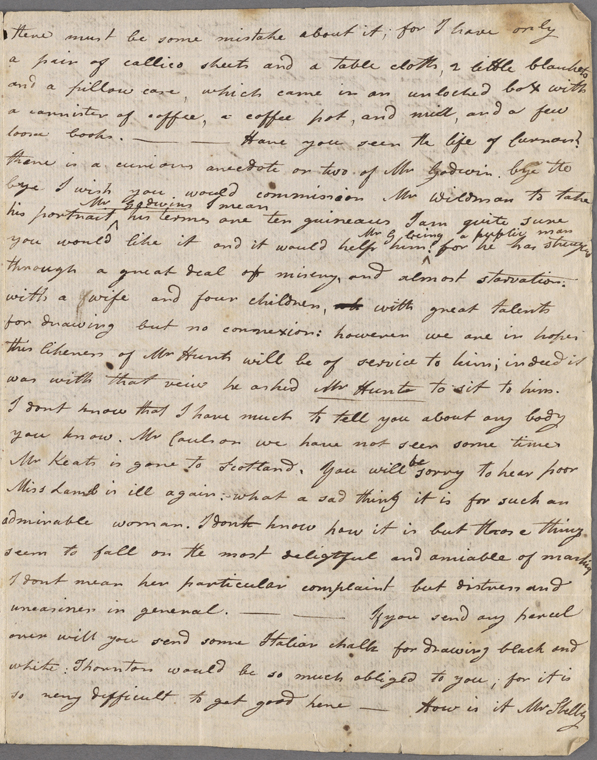 there must be some mistake about it; for I have only
a pair of callico sheets and a table cloth, 2 little blankets
and a pillow case, which came in an unlocked box with
a cannister of coffee, a coffee pot, and mill, and a few
loose books. — — Have you seen the life of Curran?
there is a curious anecdote or two of Mr Godwin. bye the
bye I wish you would commission Mr Wildman to take
Mr Godwins I mean
his portrait ^ his terms are ten guineas I am quite sure
Mr G. being a public man
you would like it and it would help him ^ for he has struggled
through a great deal of misery, and almost starvation.
with a wife and four children, with great talents
for drawing but no connexion: however we are in hopes
this likeness of Mr Hunts will be of service to him; indeed it
was with that veiw he asked Mr Hunt to sit to him.
I dont know that I have much to tell you about any body
you know. Mr Coulson we have not seen some time
Mr Keats is gone to Scotland. You will be sorry to hear poor
Miss Lamb is ill again: what a sad thing it is for such an
admirable woman. I dont know how it is but those things
seem to fall on the most deligtful and amiable of mankind
I dont mean her particular complaint but distress and
uneasiness in general. — — If you send any parcel
over will you send some Italian chalk for drawing black and
white: Thornton would be so much obliged to you; for it is
so very difficult to get good here — How is it Mr Shelly